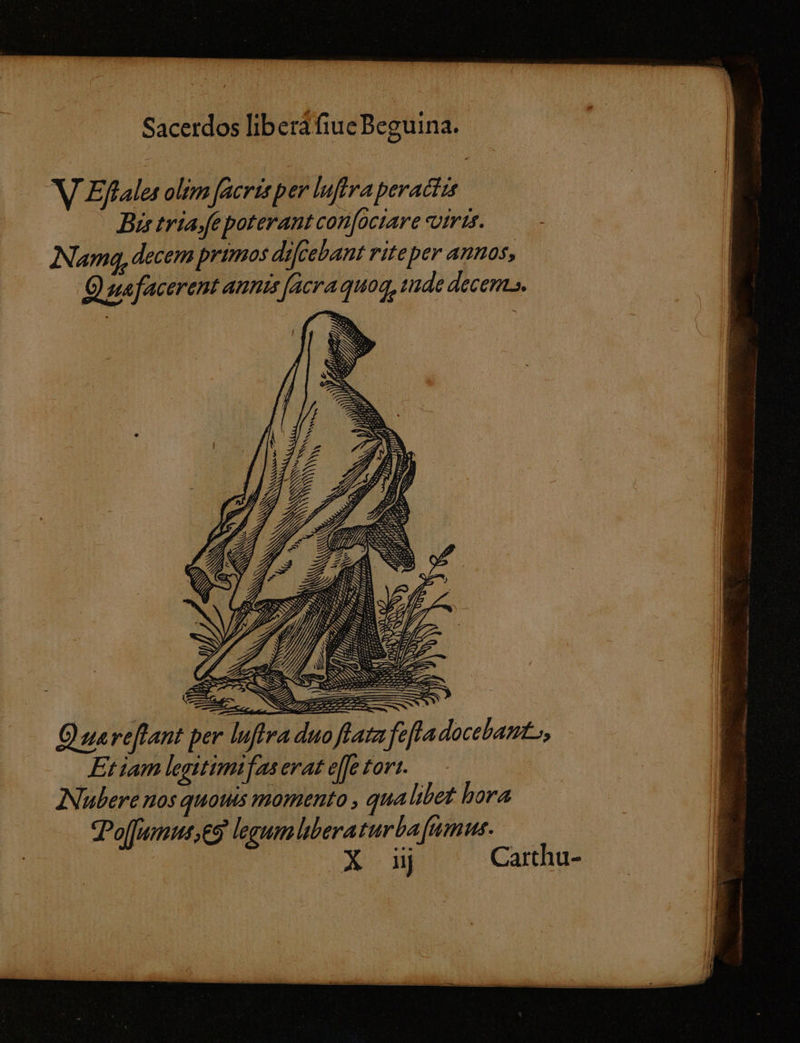 Sacerdos liberá ſiue Beguina.
VEſtales olim ſacris per luſtra peractis
Bis tria, ſe poterant conſociare viris.
Namq, decem primos diſcebant rite per annos,
Quæ facerent annis ſacra quoq, inde decem.
Quæ reſtant per luſtra duo ſtata feſta docebant,
Etiam legitimi fas erat eſſe tori.
Nubere nos quouis momento, qualibet hora
Poſſumus, & legum libera turba ſumus.
X iij Carthu-